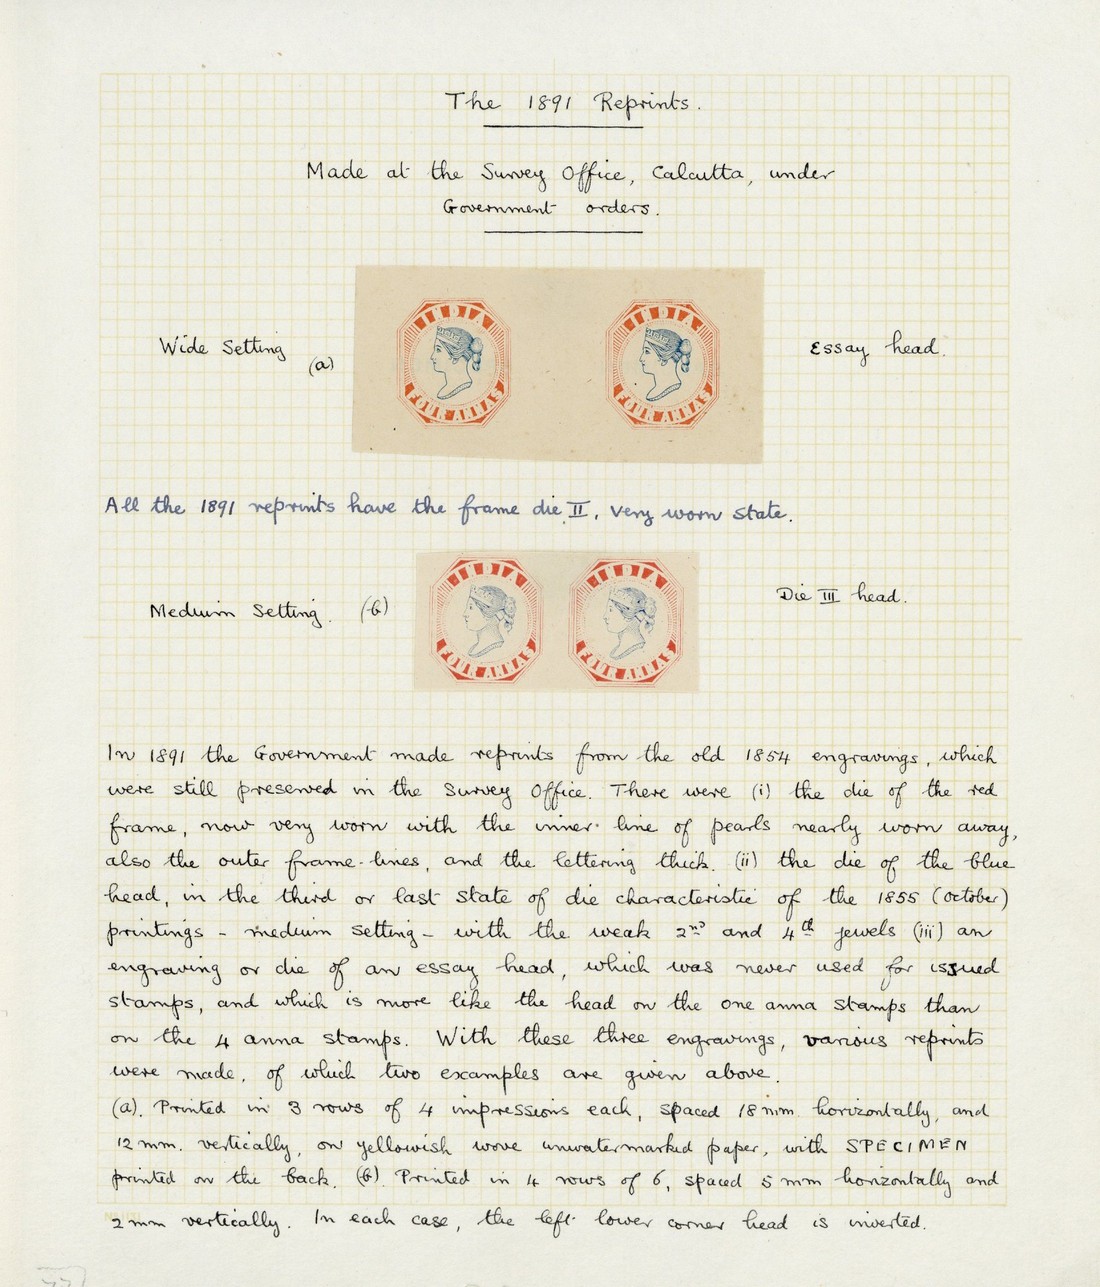 The 1891 Reprints.
Made at the Survey Office, Calcutta, under
Government orders.
Wide Setting (a)
INDIA
FOUR ANNAS
INDIA
FOUR ANNAS
Essay head.
All the 1891 reprints have the frame die II, very worn state.
Medium Setting. (b)
INDIA
FOUR ANNAS
INDIA
FOUR ANNAS
Die III head.
In 1891 the Government made reprints from the old 1854 engravings, which
were still preserved in the Survey Office. There were (i) the die of the red
frame, now very worn with the inner line of pearls nearly worn away,
also the outer frame-lines, and the lettering thick. (ii) the die of the blue
head, in the third or last state of die characteristic of the 1855 (October)
printings - medium setting - with the weak 2nd and 4th jewels (iii) an
engraving or die of an essay head, which was never used for issued
stamps, and which is more like the head on the one anna stamps than
on the 4 anna stamps. With these three engravings, various reprints
were made, of which two examples are given above.
(a). Printed in 3 rows of 4 impressions each, spaced 18 mm horizontally, and
12 mm. vertically, on yellowish wove unwatermarked paper, with SPECIMEN
printed on the back. (b). Printed in 4 rows of 6, spaced 5 mm horizontally and
2 mm vertically. In each case, the left lower corner head is inverted.